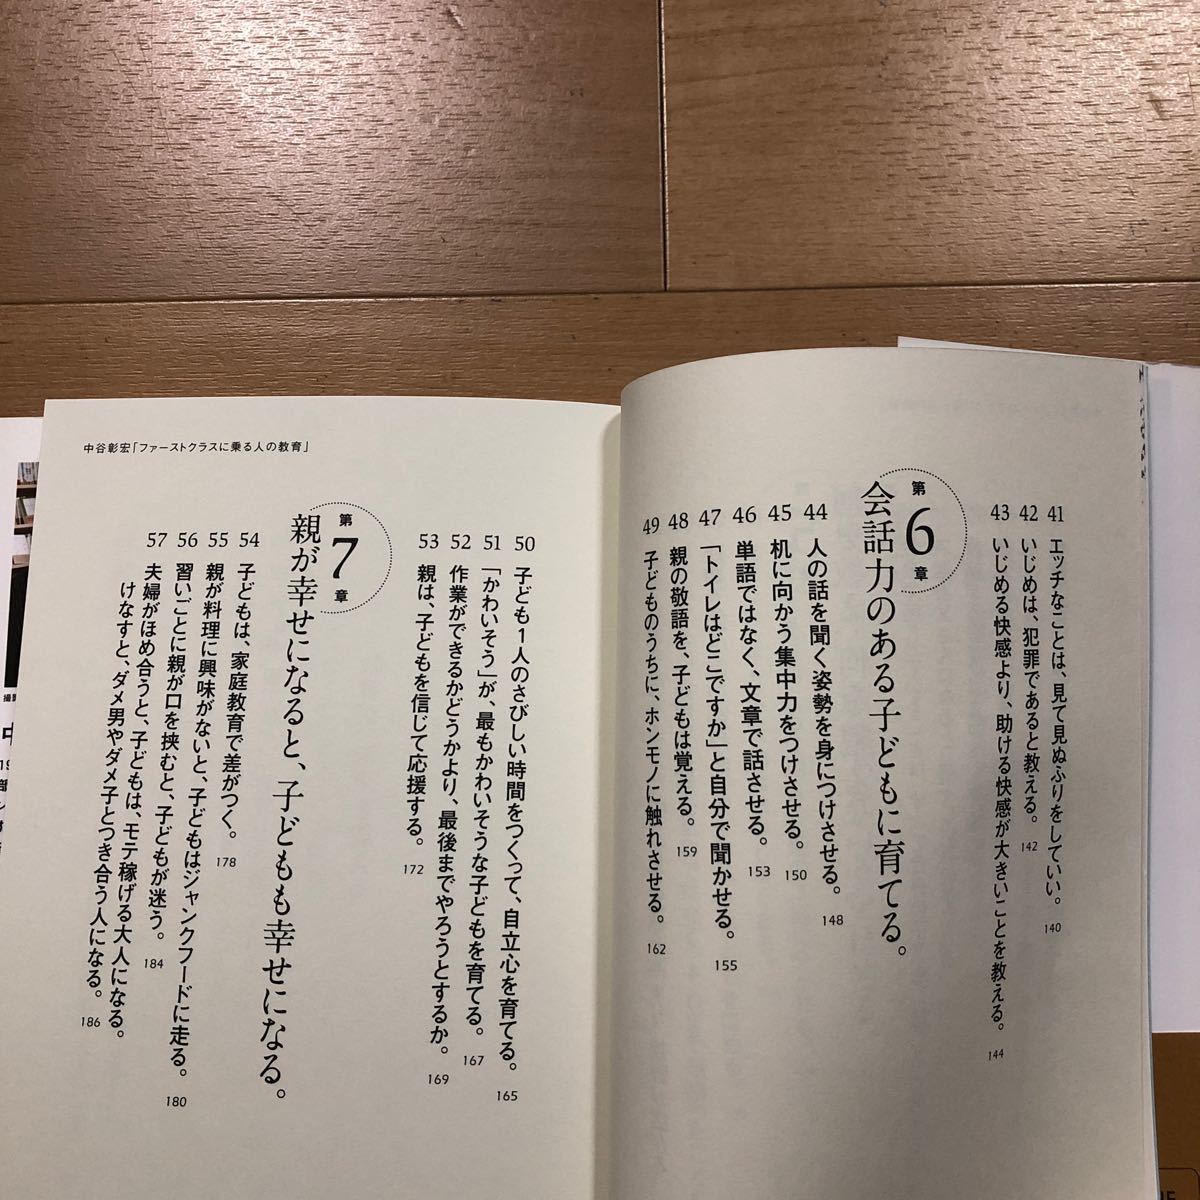 41 エッチなことは、見て見ぬふりをしていい。 140
42 いじめは、犯罪であると教える。 142
43 いじめる快感より、助ける快感が大きいことを教える。 144
第6章
会話力のある子どもに育てる。
44 人の話を聞く姿勢を身につけさせる。 148
45 机に向かう集中力をつけさせる。 150
46 単語ではなく、文章で話させる。 153
47 「トイレはどこですか」と自分で聞かせる。 155
48 親の敬語を、子どもは覚える。 159
49 子どものうちに、ホンモノに触れさせる。 162
中谷彰宏「ファーストクラスに乗る人の教育」
50 子ども1人のさびしい時間をつくって、自立心を育てる。 165
51 「かわいそう」が、最もかわいそうな子どもを育てる。 167
52 作業ができるかどうかより、最後までやろうとするか。 169
53 親は、子どもを信じて応援する。 172
第7章
親が幸せになると、子どもも幸せになる。
54 子どもは、家庭教育で差がつく。 178
55 親が料理に興味がないと、子どもはジャンクフードに走る。 180
56 習いごとに親が口を挟むと、子どもが迷う。 184
57 夫婦がほめ合うと、子どもは、モテ稼げる大人になる。
けなすと、ダメ男やダメ子とつき合う人になる。 186